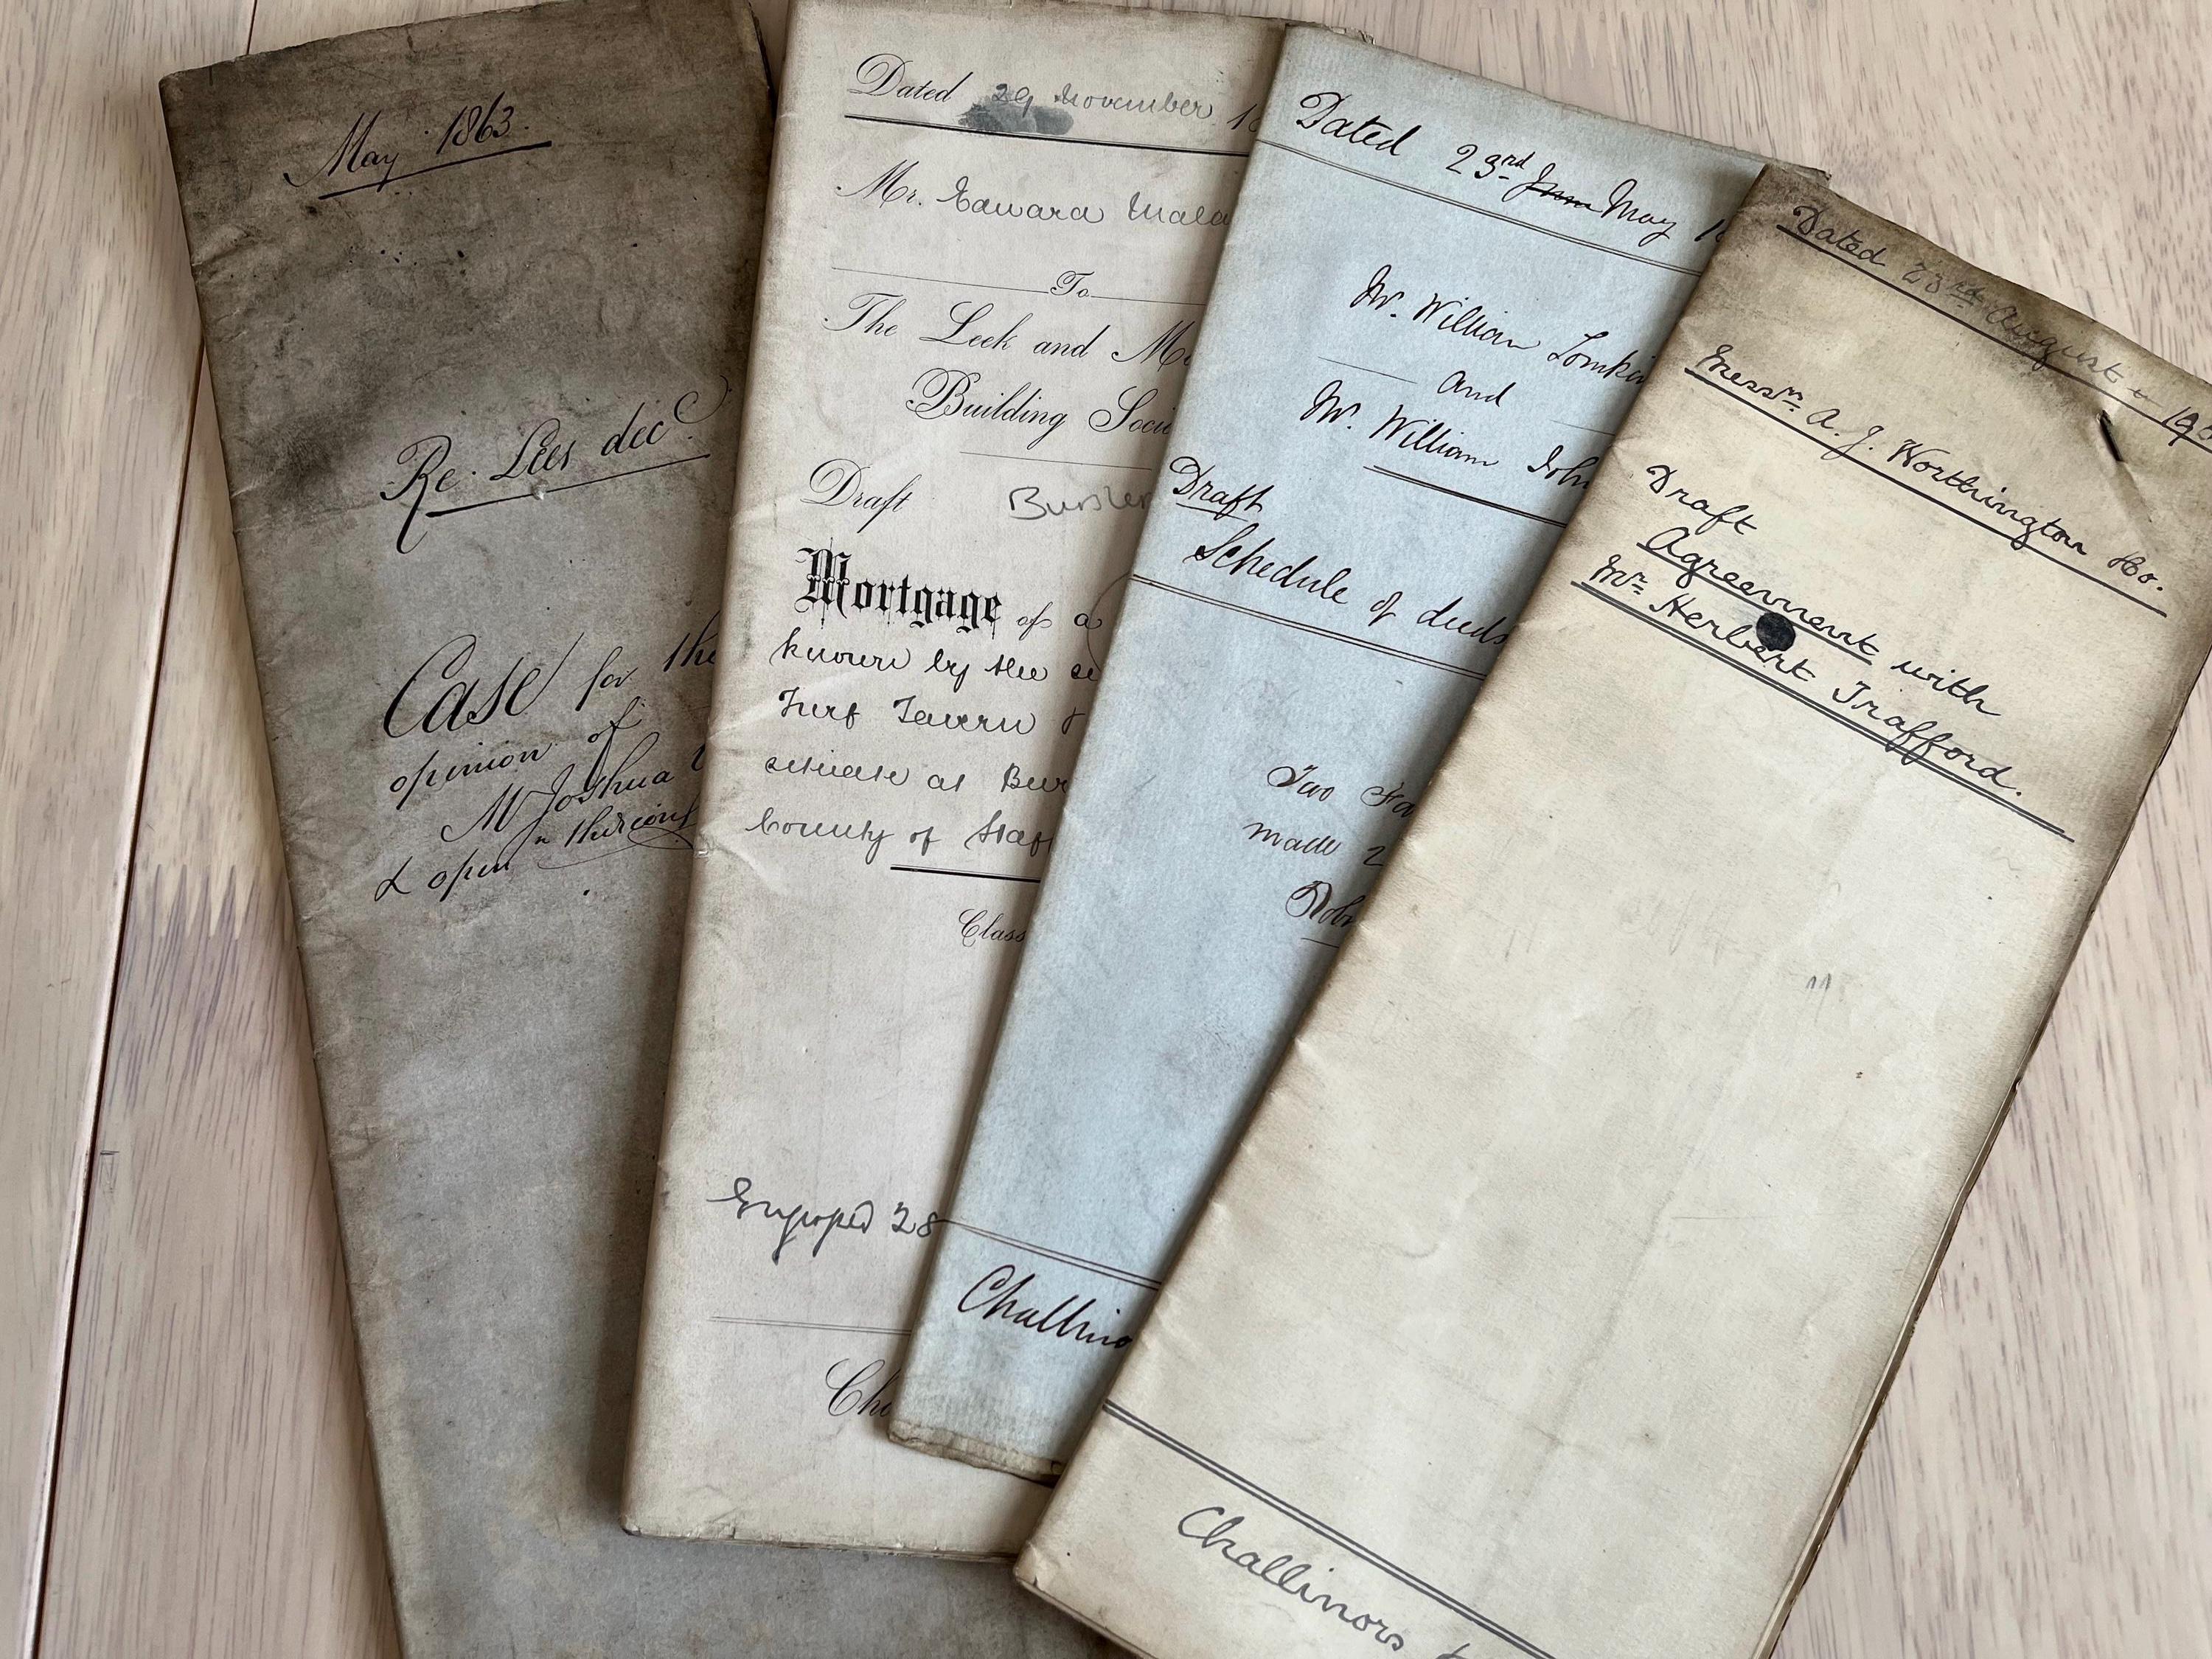 May 1863.
Re. Lees decd.
Case for the
opinion of
Mr Joshua
& open
Dated 29 November 18
Mr. Edward
To
The Leek and Mo
Building Socie
Draft Bursle
Mortgage of a
known by the
Turf Tavern &
situate at Bur
County of Staf
Class
Engrossed 28
Cha
Dated 23rd June May 18
Mr. William Tomkin
and
Mr. William John
Draft
Schedule of deeds
Two
made 2
Robe
Challino
Dated 23rd August 190
Messrs. A. J. Worthington &Co.
Draft
Agreement with
Mr. Herbert Trafford.
Challinors